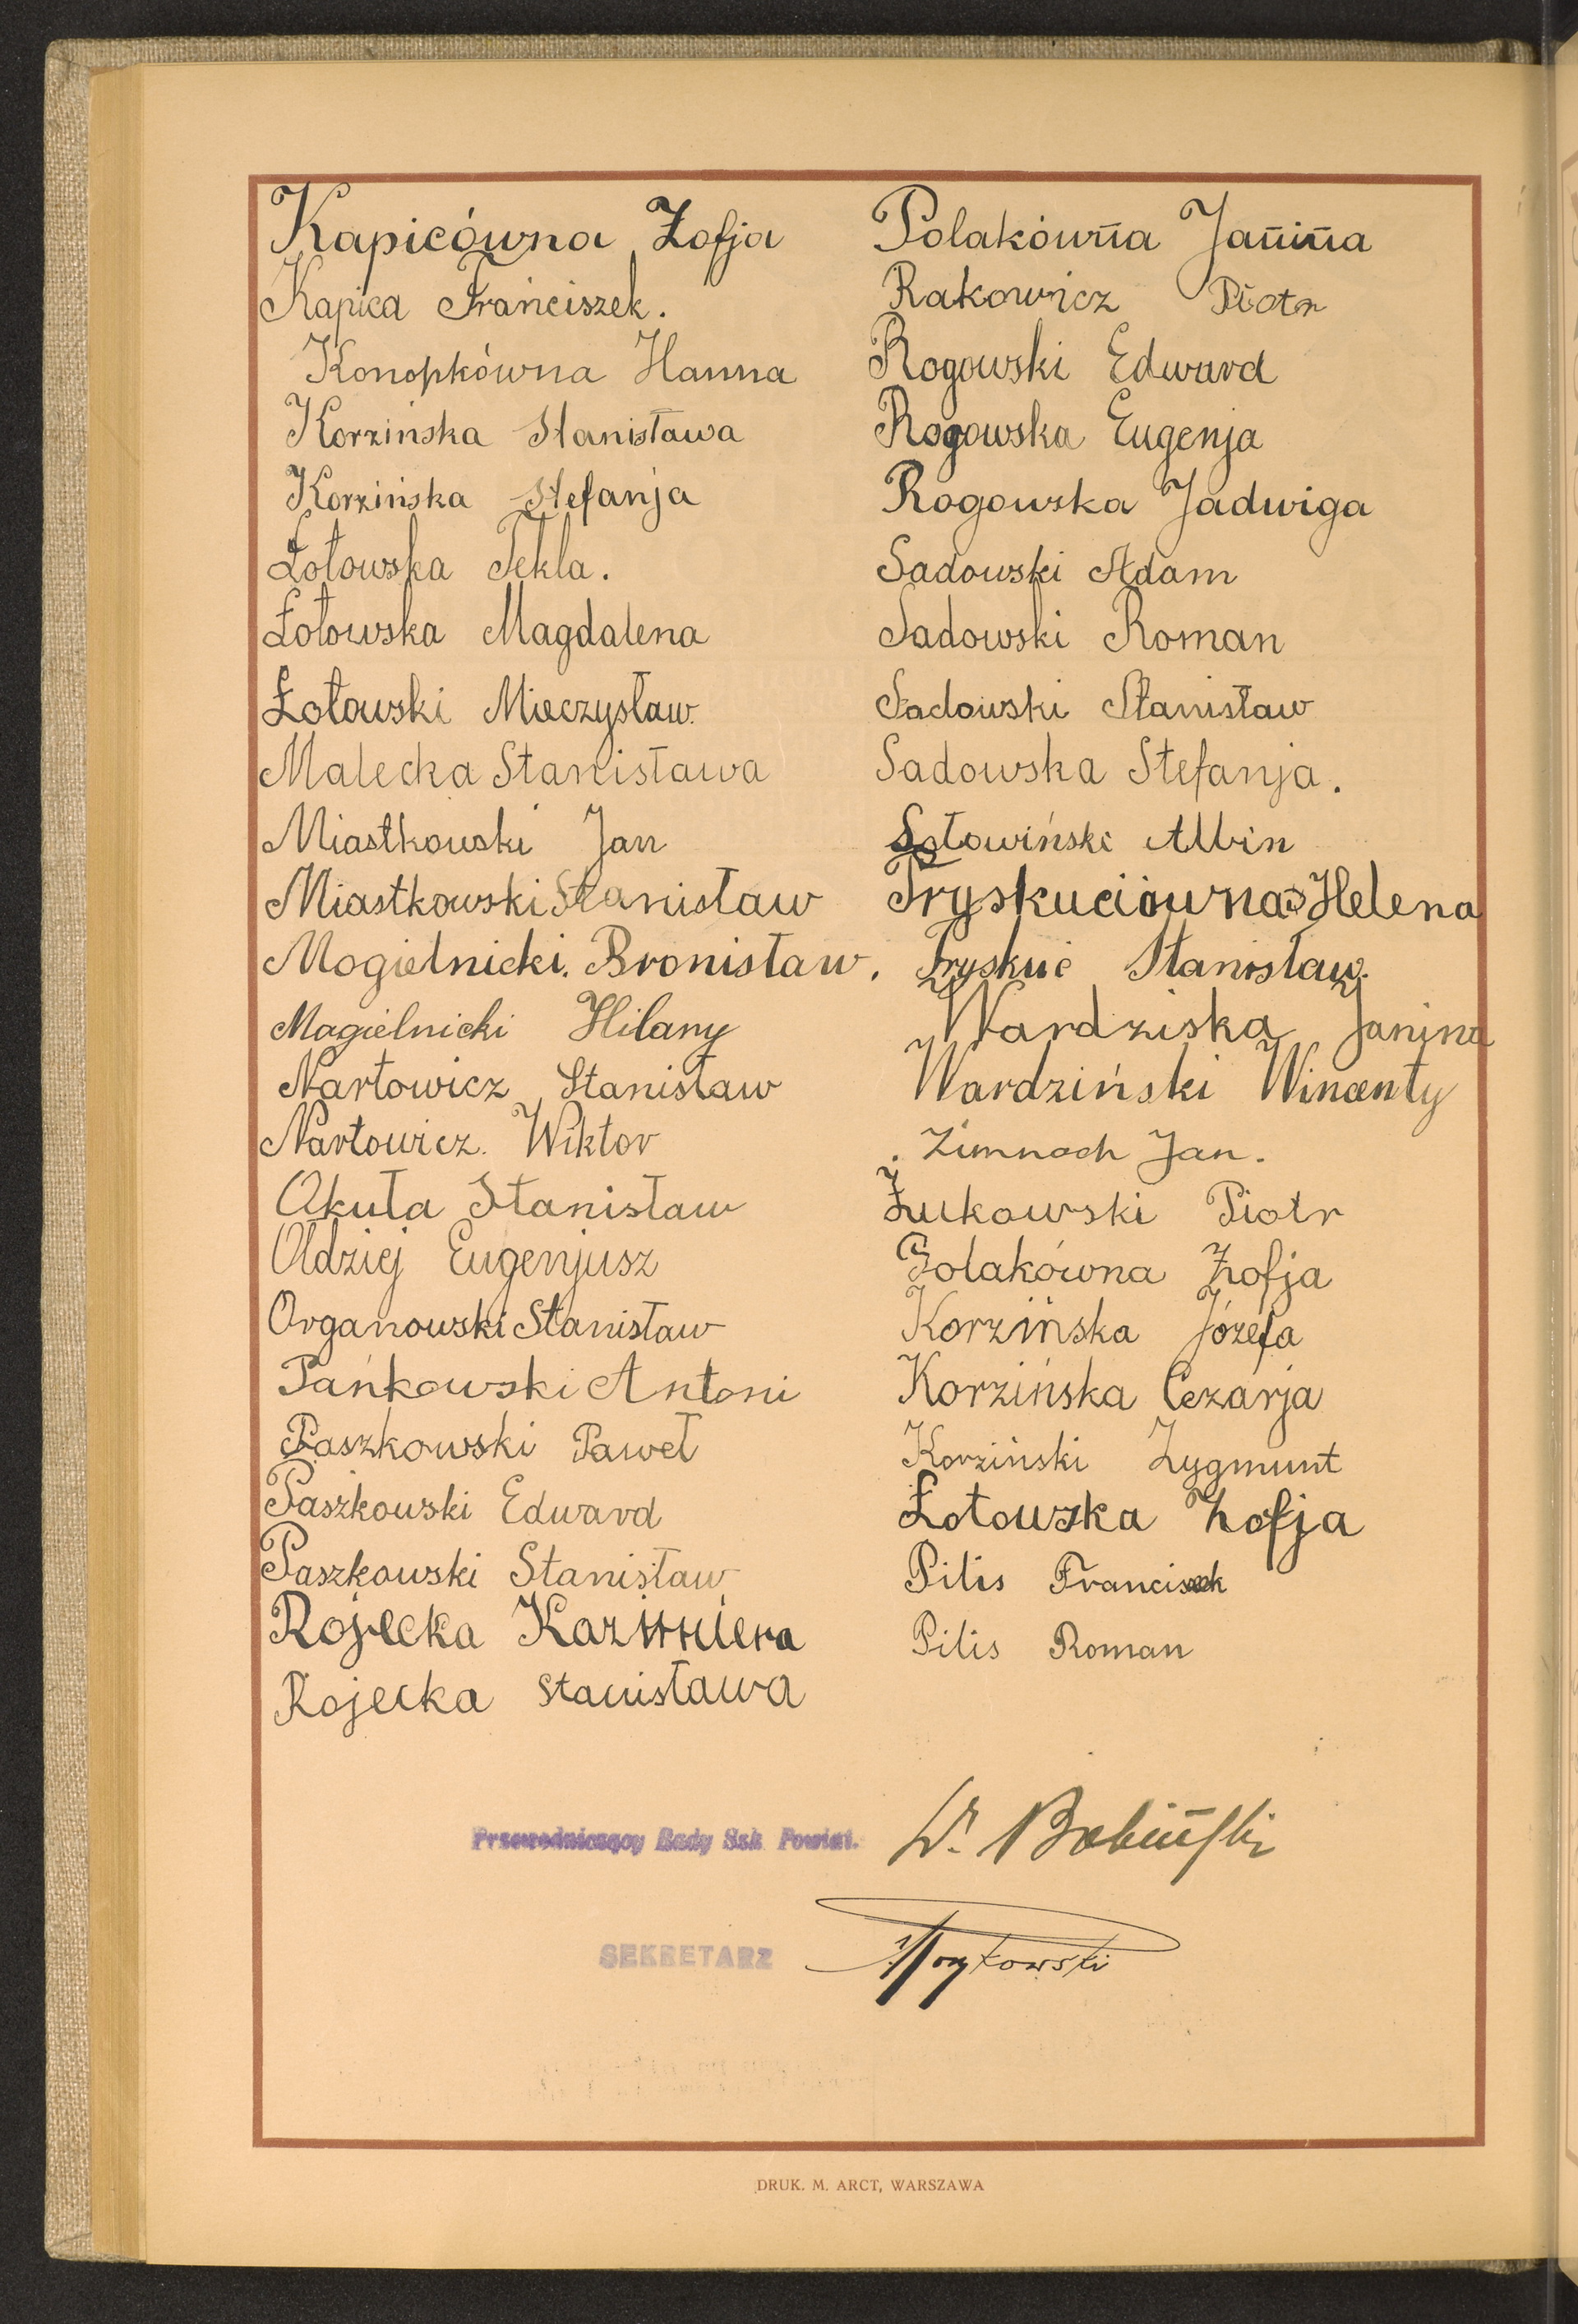 Kapicówna Zofja
Kapica Franciszek.
Konopkówna Hanna
Korzińska Stanisława
Korzińska Stefanja
Łotowska Tekla.
Łotowska Magdalena
Łotowski Mieczysław.
Malecka Stanisława
Miastkowski Jan
Miastkowski Stanisław
Mogielnicki. Bronisław.
Mogielnicki Hilary
Nartowicz Stanisław
Nartowicz. Wiktor
Okuła Stanisław
Oldziej Eugenjusz
Organowski Stanisław
Pańkowski Antoni
Paszkowski Paweł
Paszkowski Edward
Paszkowski Stanisław
Rojecka Kazimiera
Rojecka Stanisława
Polakówna Janina
Rakowicz Piotr
Rogowski Edward
Rogowska Eugenja
Rogowska Jadwiga
Sadowski Adam
Sadowski Roman
Sadowski Stanisław
Sadowska Stefanja.
Sołowiński Albin
Tryskuciówna Helena
Tryskuć Stanisław.
Wardziska Janina
Wardziński Wincenty
Zimnoch Jan.
Żukowski Piotr
Polakówna Zofja
Korzińska Józefa
Korzińska Cezarja
Korziński Zygmunt
Łotowska Zofja
Pilis Franciszek
Pilis Roman
Przewodniczący Rady Szk. Powiat.
W. Babiński
SEKRETARZ
DRUK. M. ARCT, WARSZAWA